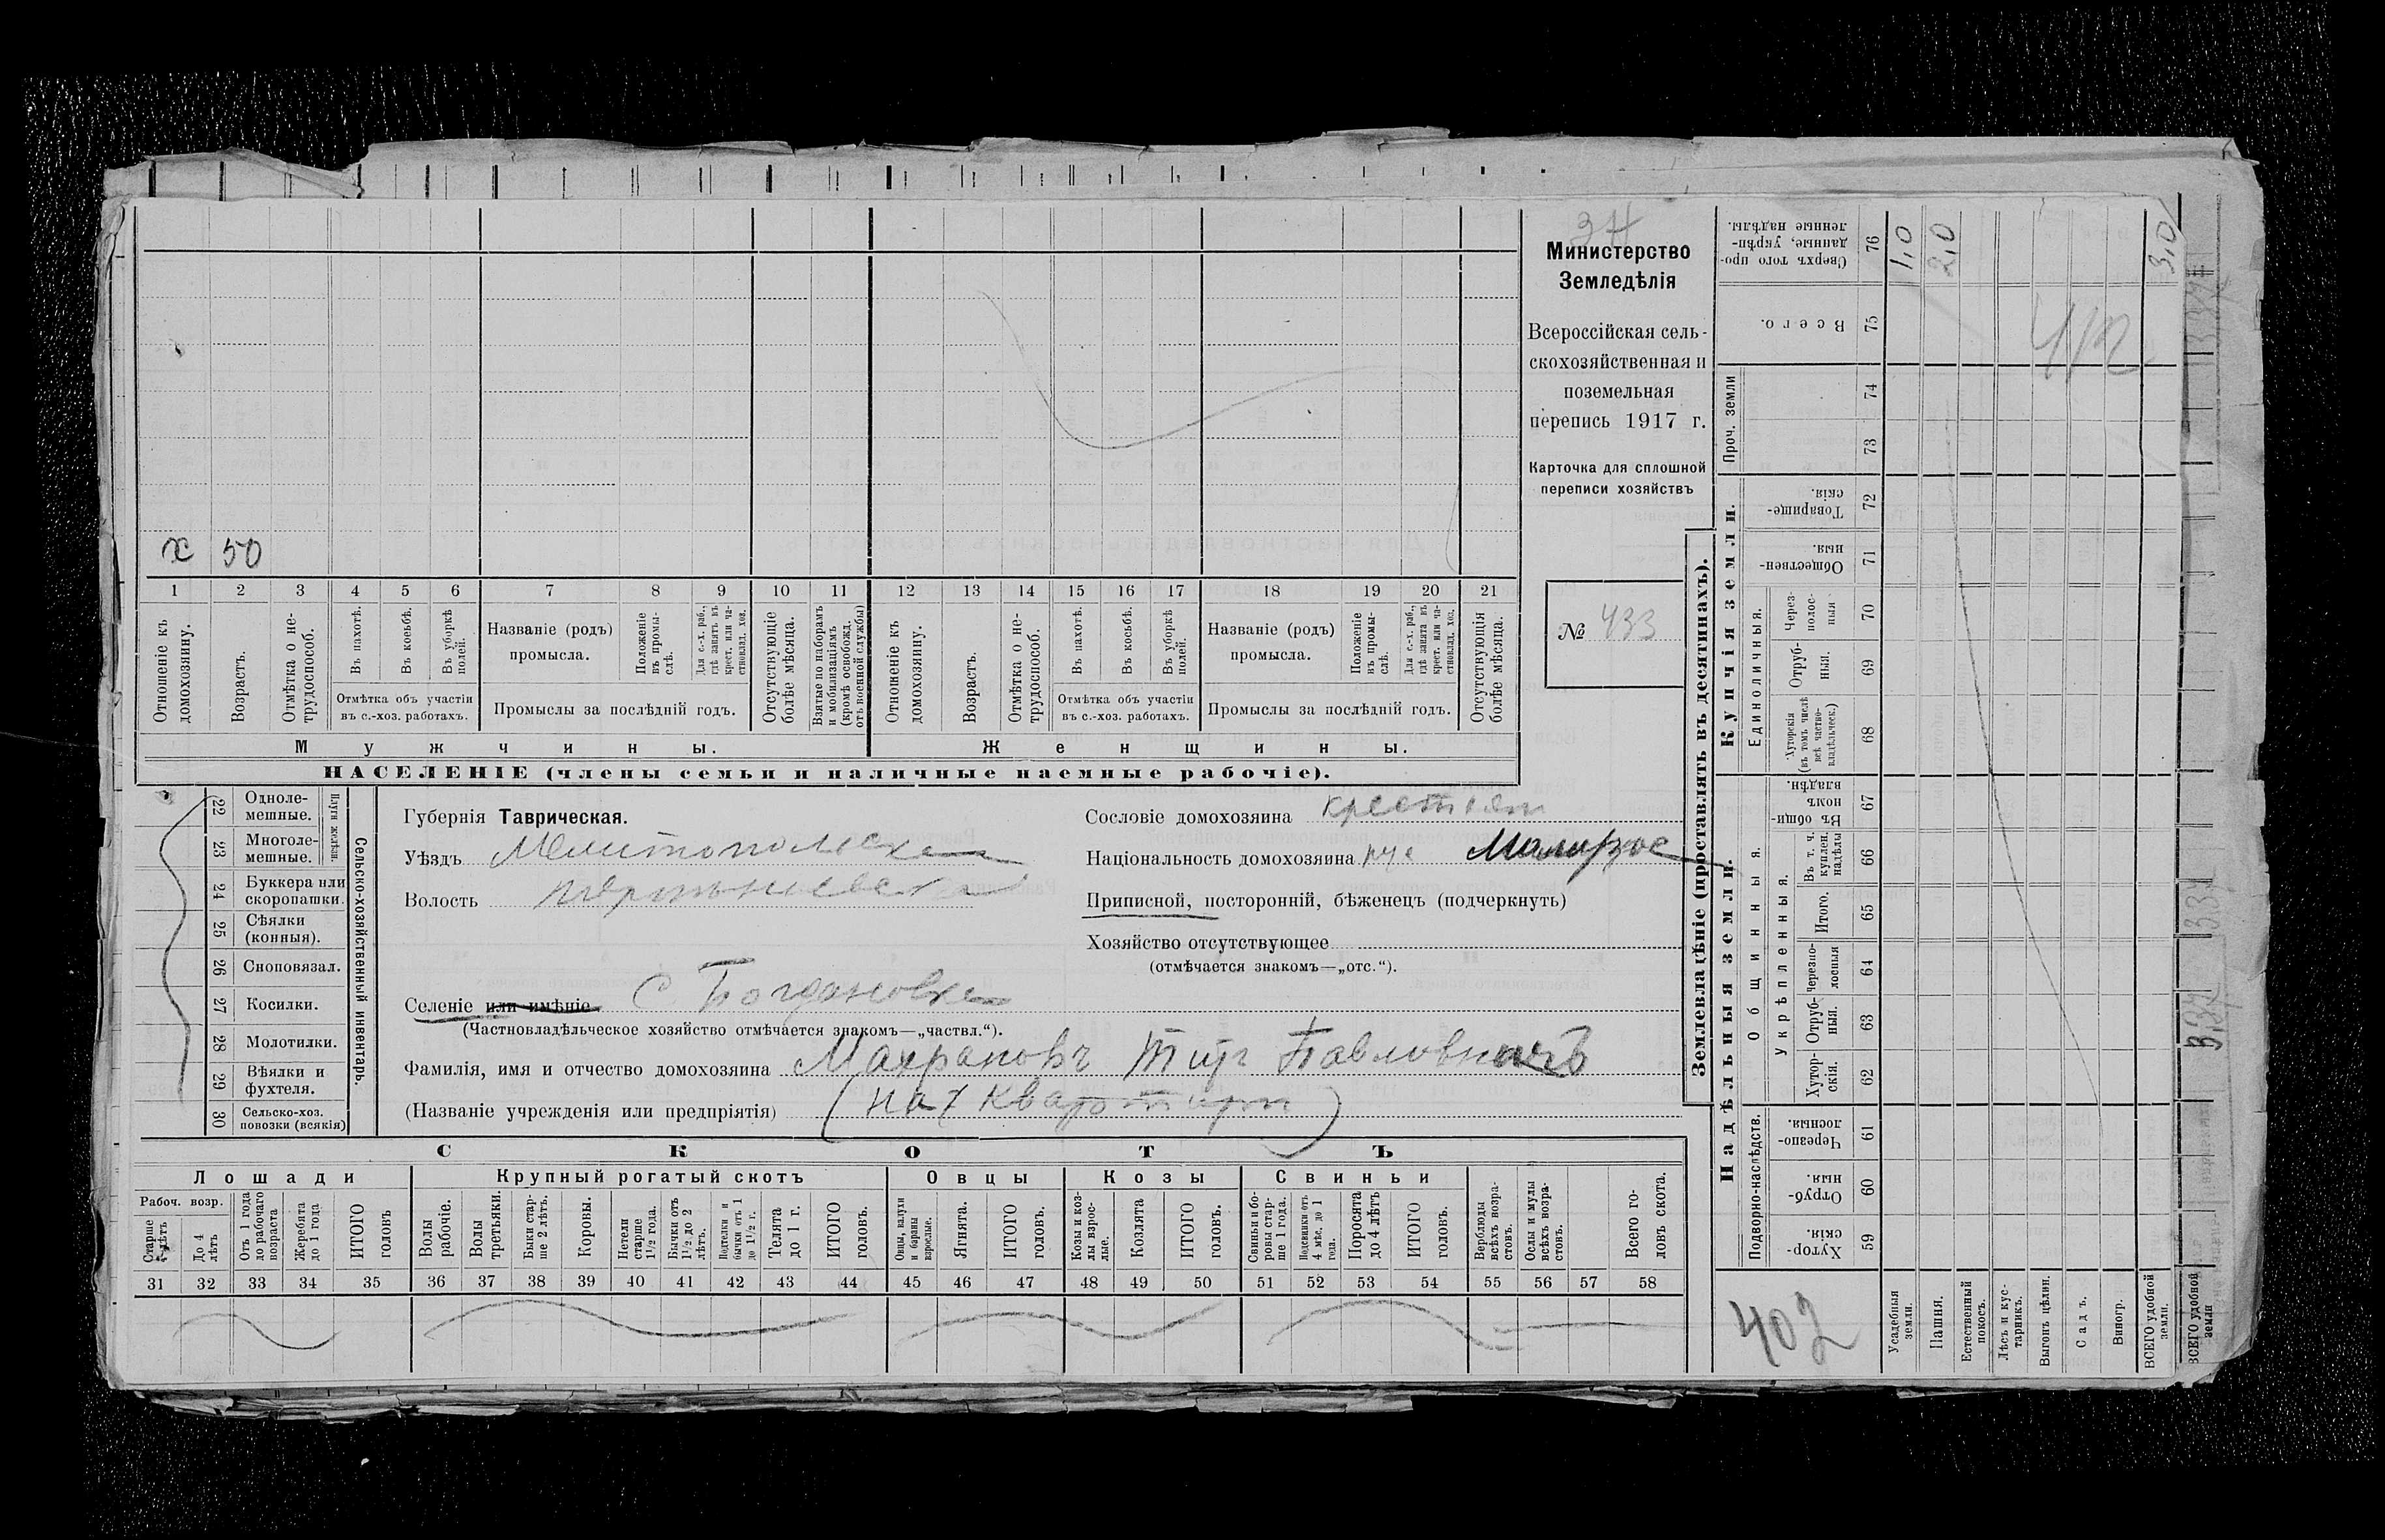 34
Министерство
Земледѣлія
Всероссійская сель-
скохозяйственная и
поземельная
перепись 1917 г.
Карточка для сплошной
переписи хозяйствъ
№ 433
х 50
1 2 3 4 5 6 7 8 9 10 11 12 13 14 15 16 17 18 19 20 21
Отношеніе къ домохозяину.
Возрастъ.
Отмѣтка о не-трудоспособ.
Въ пахотѣ.
Въ косьбѣ.
Въ уборкѣ полей.
Отмѣтка объ участіи
въ с.-хоз. работахъ.
Названіе (родъ)
промысла.
Положеніе въ промы-слѣ.
Для с.-х. раб., гдѣ занятъ въ крест. или ча-стновлад. хоз.
Промыслы за послѣдній годъ.
Отсутствующіе болѣе мѣсяца.
Взятые по наборамъ и мобилизаціямъ (кромѣ освобожд. отъ военной службы)
Отношеніе къ домохозяину.
Возрастъ.
Отмѣтка о не-трудоспособ.
Въ пахотѣ.
Въ косьбѣ.
Въ уборкѣ полей.
Отмѣтка объ участіи
въ с.-хоз. работахъ.
Названіе (родъ)
промысла.
Положеніе въ промы-слѣ.
Для с.-х. раб., гдѣ занята въ крест. или ча-стновлад. хоз.
Промыслы за послѣдній годъ.
Отсутствующія болѣе мѣсяца.
Мужчины.
Женщины.
НАСЕЛЕНІЕ (члены семьи и наличные наемные рабочіе).
Сельско-хозяйственный инвентарь.
Плуги желѣзн.
22 Одноле-мешные.
23 Многоле-мешные.
24 Буккера или скоропашки.
25 Сѣялки (конныя).
26 Сноповязал.
27 Косилки.
28 Молотилки.
29 Вѣялки и фухтеля.
30 Сельско-хоз. повозки (всякія)
Губернія Таврическая.
Уѣздъ Мелитопольскъ
Волость
Селеніе или имѣніе С Богдановка
(Частновладѣльческое хозяйство отмѣчается знакомъ—„частвл.“).
Фамилія, имя и отчество домохозяина Махрановъ Титъ Павловичъ
(Названіе учрежденія или предпріятія) (на квартирѣ)
Сословіе домохозяина крестьян
Національность домохозяина рус Малорос
Приписной, посторонній, бѣженецъ (подчеркнуть)
Хозяйство отсутствующее
(отмѣчается знакомъ—„отс.“).
СКОТЪ
Лошади
Крупный рогатый скотъ
Овцы
Козы
Свиньи
Рабоч. возр.
Старше 4 лѣтъ
До 4 лѣтъ
Отъ 1 года до рабочаго возраста
Жеребята до 1 года
ИТОГО головъ
Волы рабочіе.
Волы третьяки.
Быки стар-ше 2 лѣтъ.
Коровы.
Нетели старше 1½ года.
Бычки отъ 1½ до 2 лѣтъ.
Подтелки и бычки отъ 1 до 1½ г.
Телята до 1 г.
ИТОГО головъ.
Овцы, валухи и бараны взрослые.
Ягнята.
ИТОГО головъ.
Козы и коз-лы взрос-лые.
Козлята
ИТОГО головъ.
Свиньи и бо-ровы стар-ше 1 года.
Подсвинки отъ 4 мѣс. до 1 года.
Поросята до 4 лѣтъ
ИТОГО головъ.
Верблюды всѣхъ возра-стовъ.
Ослы и мулы всѣхъ возра-стовъ.
Всего го-ловъ скота.
31 32 33 34 35 36 37 38 39 40 41 42 43 44 45 46 47 48 49 50 51 52 53 54 55 56 57 58
Землевладѣніе (проставлять въ десятинахъ).
Купчія земли.
Надѣльныя земли.
Сверхъ того про-данные, укрѣп-ленные надѣлы. 76
1,0 2,0 3,0
Всего. 75
412
Проч. земли
74
73
Товарище-скія. 72
Обществен-ныя. 71
Единоличныя.
Через-полос-ныя 70
Отруб-ныя. 69
Хуторскія (въ томъ числѣ всѣ частно-владѣльческ.) 68
Общинныя.
Въ общи-номъ владѣн. 67
Укрѣпленныя.
Въ т. ч. куплен. надѣлы 66
Итого. 65
Черезпо-лосныя 64
Отруб-ныя. 63
Хутор-скія. 62
Подворно-наслѣдств.
Черезпо-лосныя. 61
Отруб-ныя. 60
Хутор-скія. 59
402
Усадебныя земли.
Пашня.
Естественный покосъ.
Лѣсъ и кус-тарникъ.
Выгонъ цѣлин.
Садъ.
Виногр.
ВСЕГО удобной земли.
ВСЕГО удобной земли